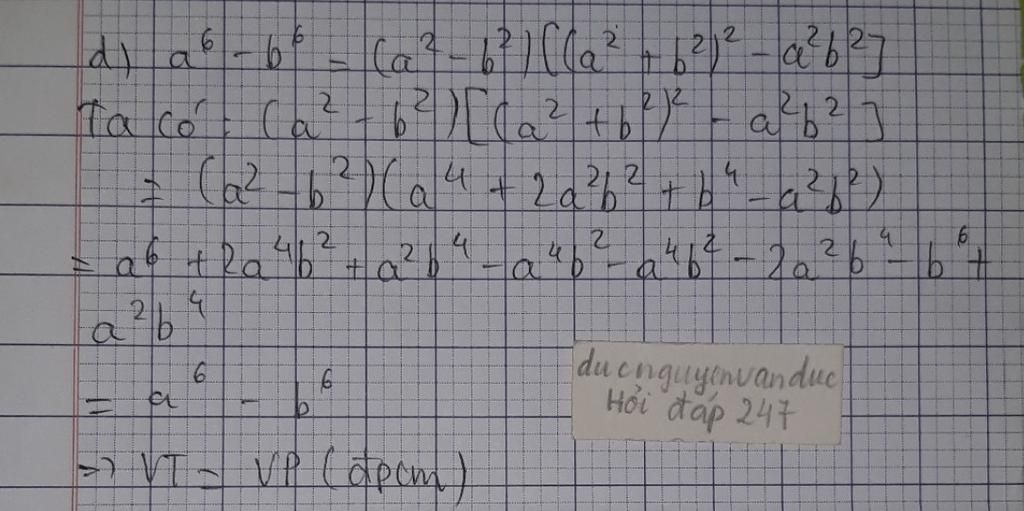 d) a⁶ - b⁶ = (a² - b²)[(a² + b²)² - a²b²]
Ta có: (a² - b²)[(a² + b²)² - a²b²]
= (a² - b²)(a⁴ + 2a²b² + b⁴ - a²b²)
= a⁶ + 2a⁴b² + a²b⁴ - a⁴b² - a⁴b² - 2a²b⁴ - b⁶ +
a²b⁴
= a⁶ - b⁶
=> VT = VP (đpcm)
ducnguyenvanduc
Hỏi đáp 247